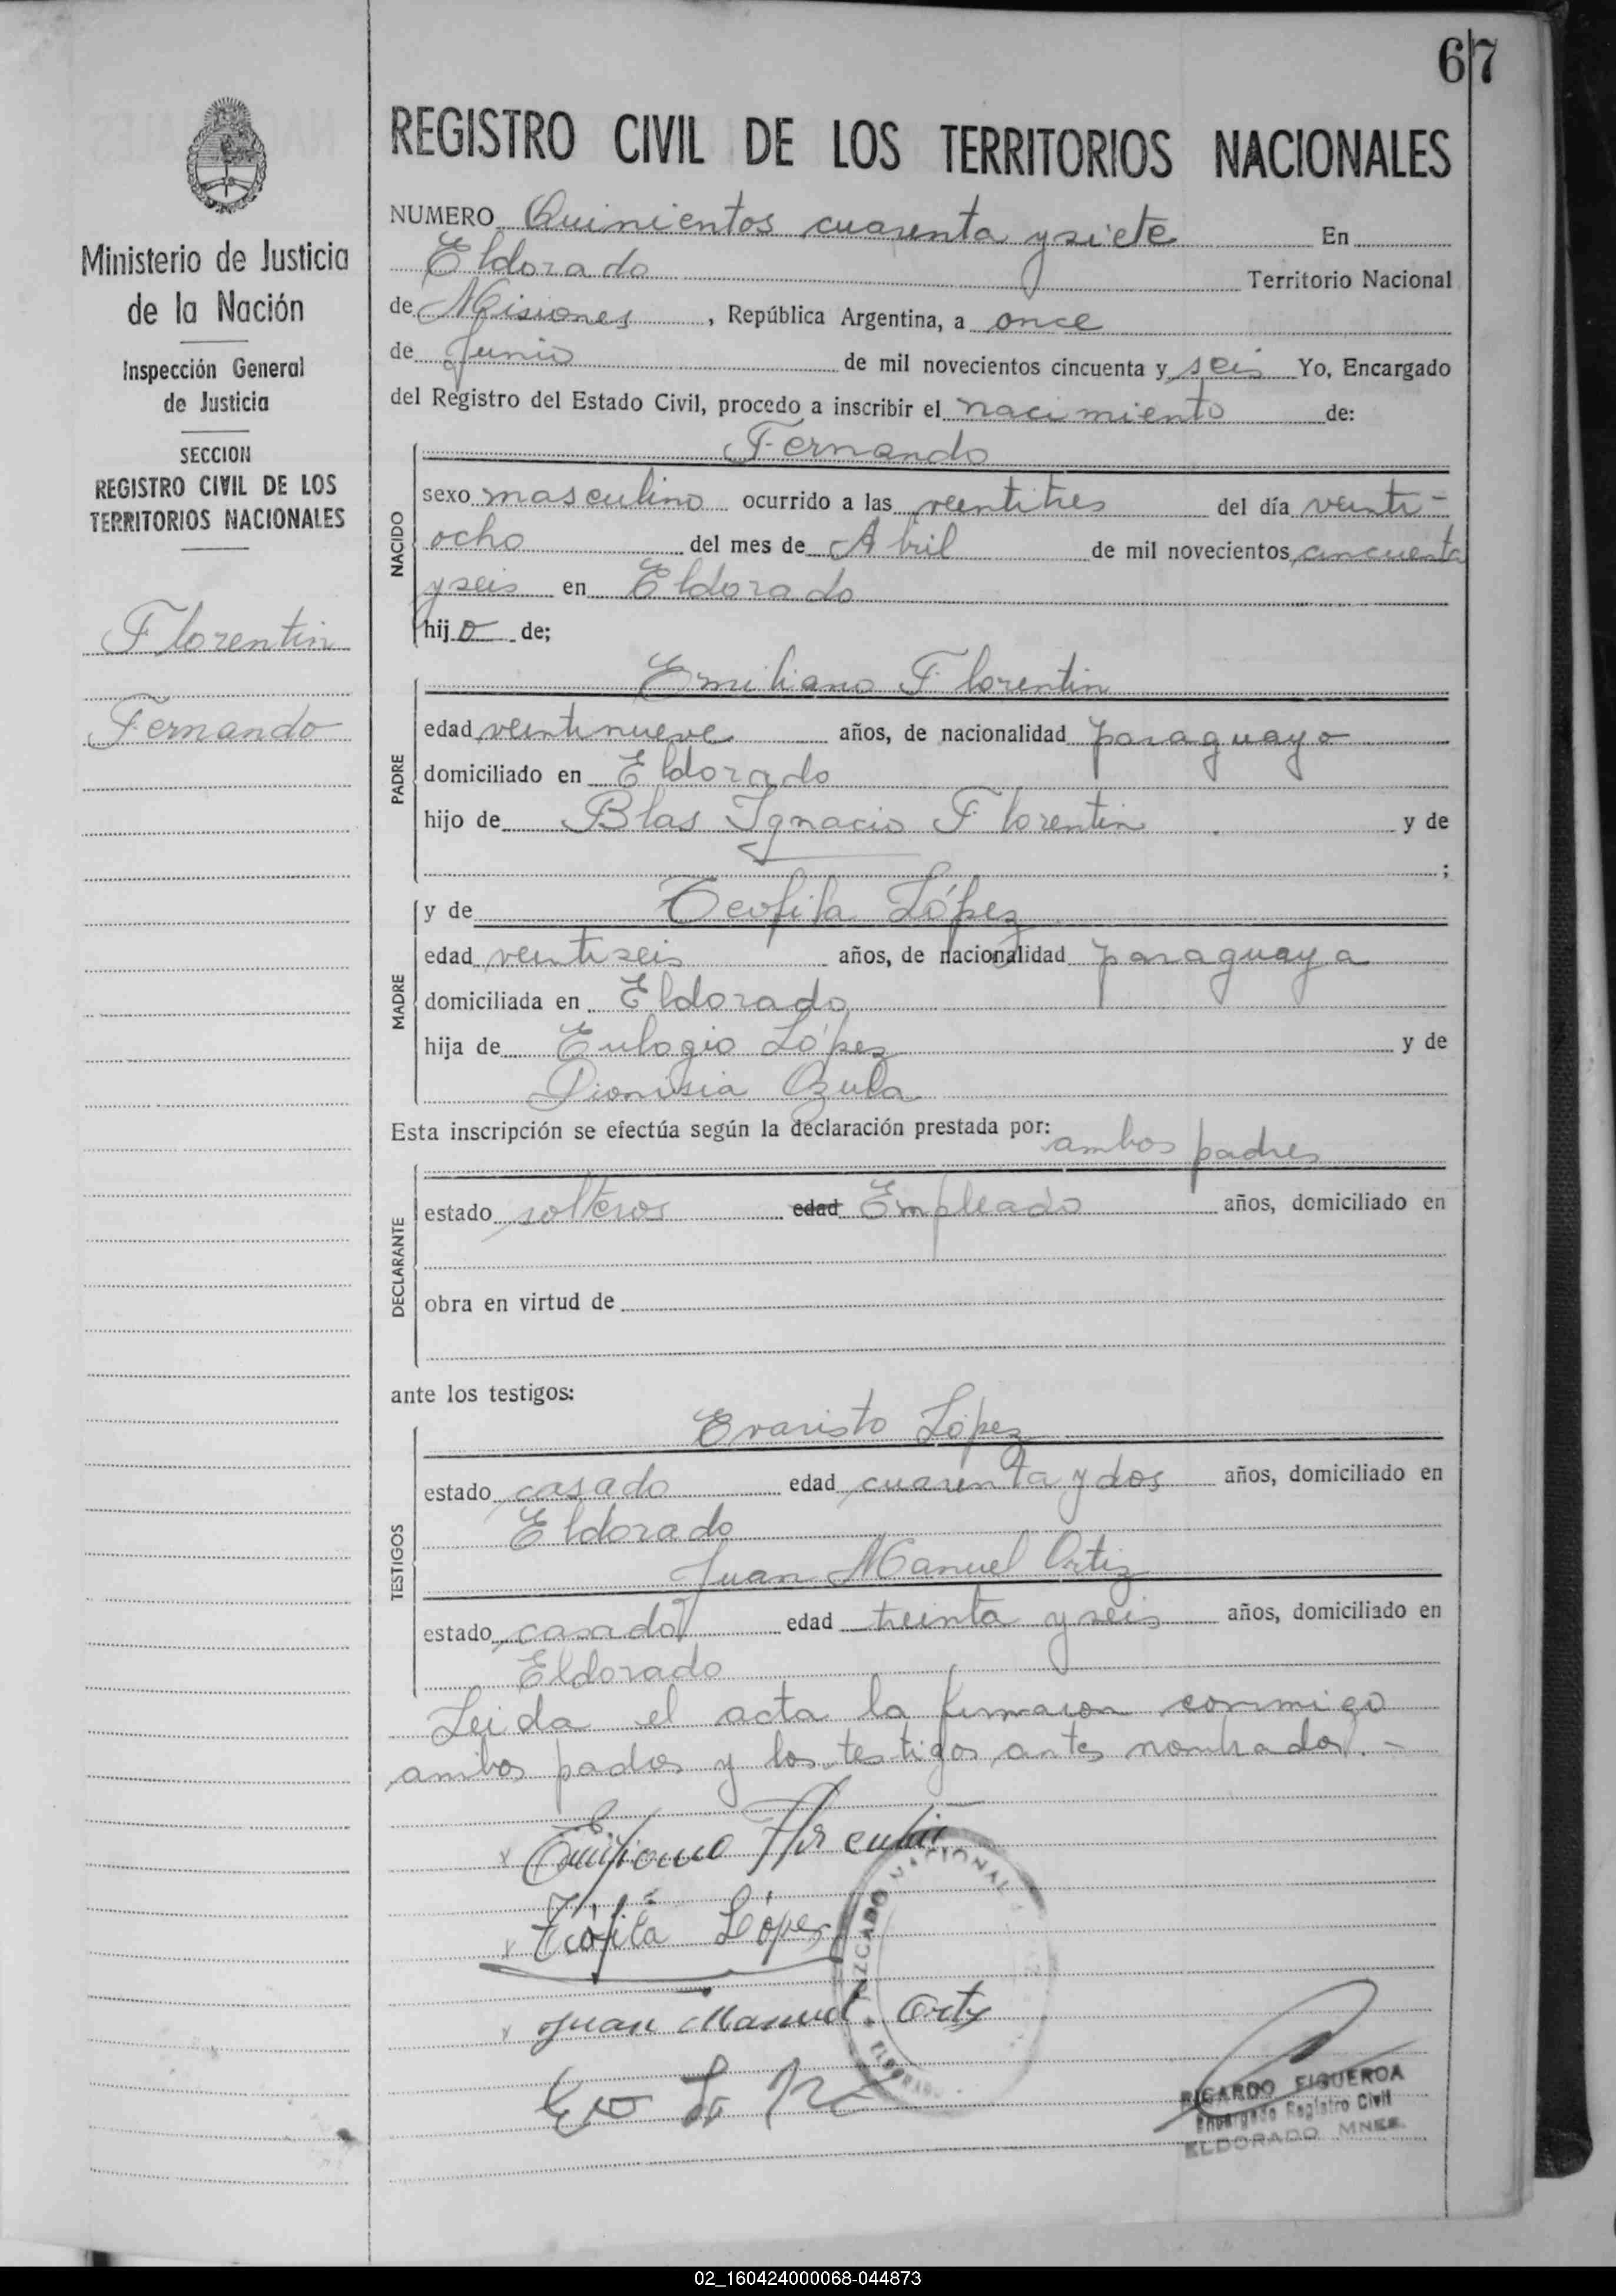 67
REGISTRO CIVIL DE LOS TERRITORIOS NACIONALES
Ministerio de Justicia
de la Nación
Inspección General
de Justicia
SECCION
REGISTRO CIVIL DE LOS
TERRITORIOS NACIONALES
Florentin
Fernando
NUMERO Quinientos cuarenta y siete En
Eldorado Territorio Nacional
de Misiones, República Argentina, a once
de Junio de mil novecientos cincuenta y seis Yo, Encargado
del Registro del Estado Civil, procedo a inscribir el nacimiento de:
NACIDO
Fernando
sexo masculino ocurrido a las veintitres del día veinti-
ocho del mes de Abril de mil novecientos cincuenta
y seis en Eldorado
hijo de;
PADRE
Emiliano Florentin
edad veintinueve años, de nacionalidad paraguayo
domiciliado en Eldorado
hijo de Blas Ignacio Florentin y de
;
MADRE
y de Teofila López
edad veintiseis años, de nacionalidad paraguaya
domiciliada en Eldorado
hija de Eulogio López y de
Dionisia Ozula
Esta inscripción se efectúa según la declaración prestada por:
ambos padres
DECLARANTE
estado solteros edad Empleado años, domiciliado en
obra en virtud de
ante los testigos:
TESTIGOS
Evaristo López
estado casado edad cuarenta y dos años, domiciliado en
Eldorado
Juan Manuel Ortiz
estado casado edad treinta y seis años, domiciliado en
Eldorado
Leida el acta la firmaron conmigo
ambos padres y los testigos antes nombrados.-
x Emiliano Florentin
x Teófila López
x Juan Manuel Ortiz
JUZGADO NACIONAL
ELDORADO
RICARDO FIGUEROA
Encargado Registro Civil
ELDORADO MNES.
02_160424000068-044873